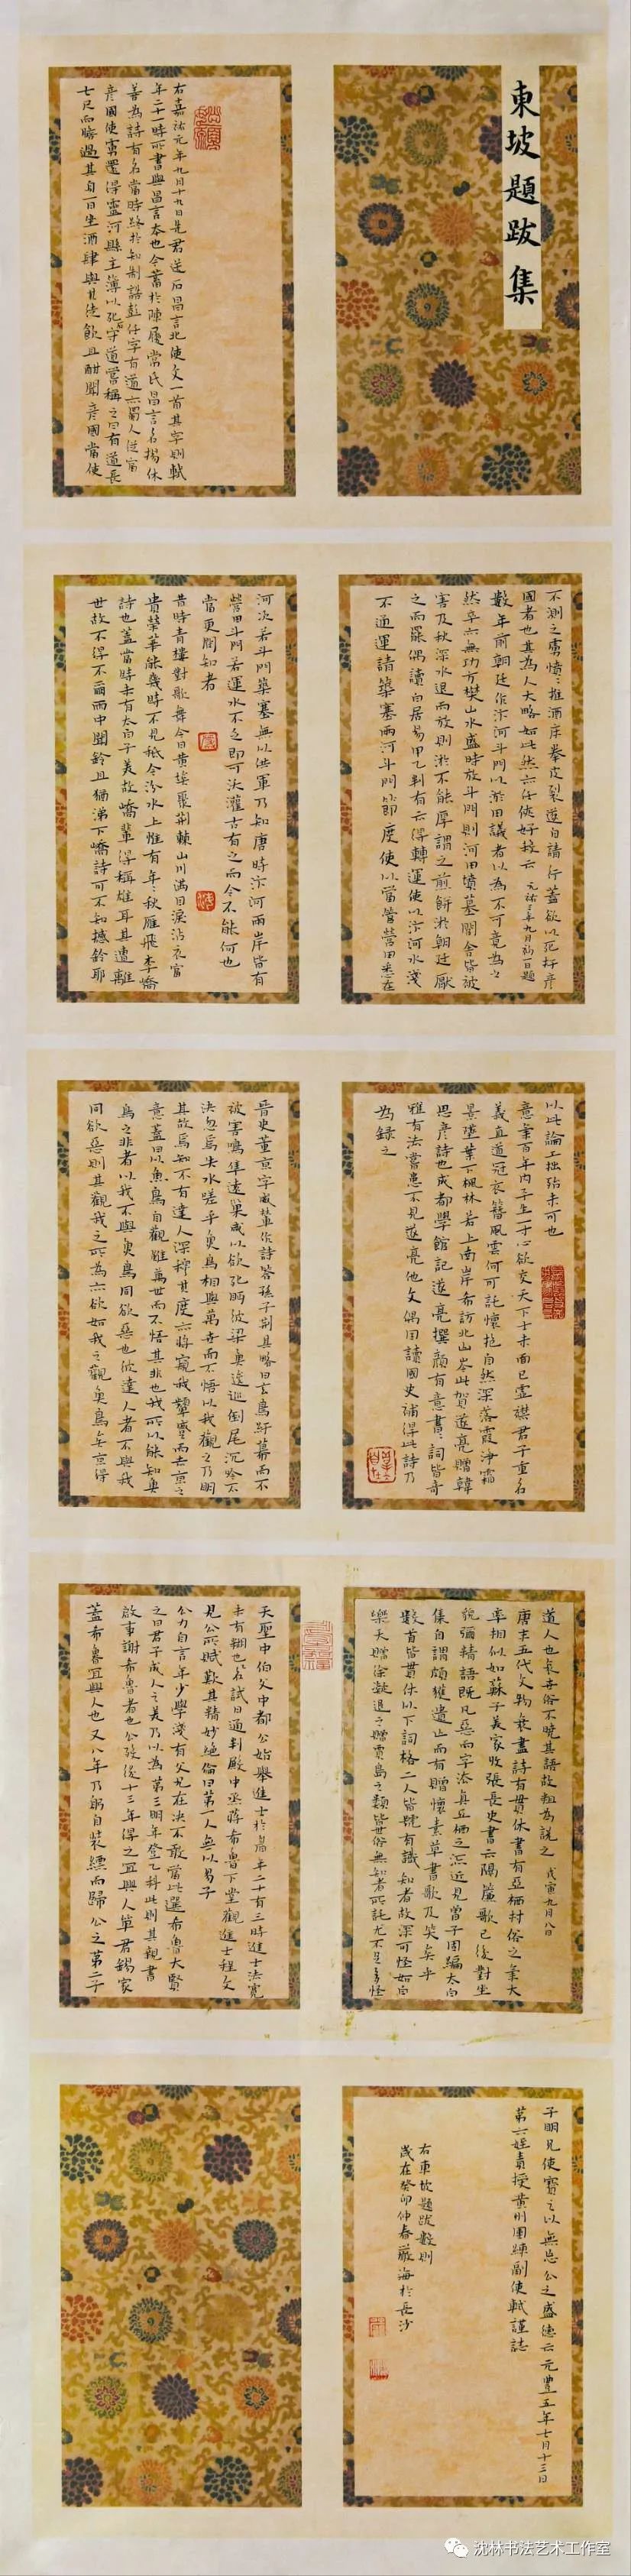 東坡題跋集
右嘉祐元年九月十九日先君送石昌言北使文一首其字則軾
年二十一時所書與昌言本也今蓄於陳履常氏昌言名揚休
善為詩有名當時終於知制誥彭任字有道亦蜀人從富
彥國使虜還得靈河縣主簿以死石守道嘗稱之曰有道長
七尺而膽過其身一日坐酒肆與其徒飲且酣聞彥國當使
不測之虜憤憤推酒床拳皮裂遂自請行蓋欲以死扞彥
國者也其為人大略如此然亦任俠好殺云 元祐三年九月初一日題
數年前朝廷作汴河斗門以淤田議者以為不可竟為之
然卒亦無功方樊山水盛時放斗門則河田墳墓閭舍皆被
害及秋深水退而放則淤不能厚謂之煎餅淤朝廷厭
之而罷偶讀白居易甲乙判有云得轉運使以汴河水淺
不通運請築塞兩河斗門節度使以當管營田悉在
河次若斗門築塞無以供軍乃知唐時汴河兩岸皆有
營田斗門若運水不乏即可沃灌古有之而今不能何也
當更問知者
昔時青樓對歌舞今日黃埃聚荊棘山川滿目淚沾衣富
貴榮華能幾時不見秖今汾水上惟有年年秋雁飛李嶠
詩也蓋當時未有太白子美故嶠輩得稱雄耳其遭離
世故不得不爾雨中聞鈴且猶涕下嶠詩可不如撼鈴耶
以此論工拙殆未可也
意氣百年內平生一寸心欲交天下士未面已虛襟君子重名
義直道冠衣簪風雲何可託懷抱自然深落霞淨霜
景墜葉下楓林若上南岸希訪北山岑此賀遂亮贈韓
思彥詩也成都學館記遂亮撰顏有意書書詞皆奇
雅有法嘗患不見遂亮他文偶因讀國史補得此詩乃
為錄之
晉史董京字威輦作詩答孫子荊其略曰玄鳥紆幕而不
被害鳴隼遠巢咸以欲死眄彼梁魚逡巡倒尾沉吟不
決忽焉失水嗟乎魚鳥相與萬世而不悟以我觀之乃明
其故焉知不有達人深穆其度亦將窺我顰蹙而去京之
意蓋曰以魚鳥自觀雖萬世而不悟其非也我所以能知魚
鳥之非者以我不與魚鳥同欲惡也彼達人者不與我
同欲惡則其觀我之所為亦欲如我之觀魚鳥矣京得
道人也哀世俗不曉其語故粗為說之 戊寅九月八日
唐末五代文物衰盡詩有貫休書有亞栖村俗之氣大
率相似如蘇子美家收張長史書云隔簾歌已俊對坐
貌彌精語既凡惡而字法真亞栖之流近見曾子固編太白
集自謂頗獲遺亡而有贈懷素草書歌及笑矣乎
數首皆貫休以下詞格二人皆號有識知者故深可怪如白
樂天贈徐凝退之贈賈島之類皆世俗無知者所託尤不足多怪
天聖中伯父中都公始舉進士於眉年二十有三時進士法寬
未有糊也名試日通判殿中丞蔣希魯下堂觀進士程文
見公所賦歎其精妙絕倫曰第一人無以易子
公力自言年少學淺有父兄在決不敢當此選希魯大賢
之曰君子成人之美乃以為第三明年登乙科此則其觀書
啟事謝希魯者也公歿後十三年得之宜興人單君錫家
蓋希魯宜興人也又八年乃躬自裝縹而歸公之第二子
子明兄使寶之以無忘公之盛德云元豐五年七月十三日
第六姪責授黃州團練副使軾謹誌
右東坡題跋數則
歲在癸卯仲春嚴海於長沙
沈林书法艺术工作室